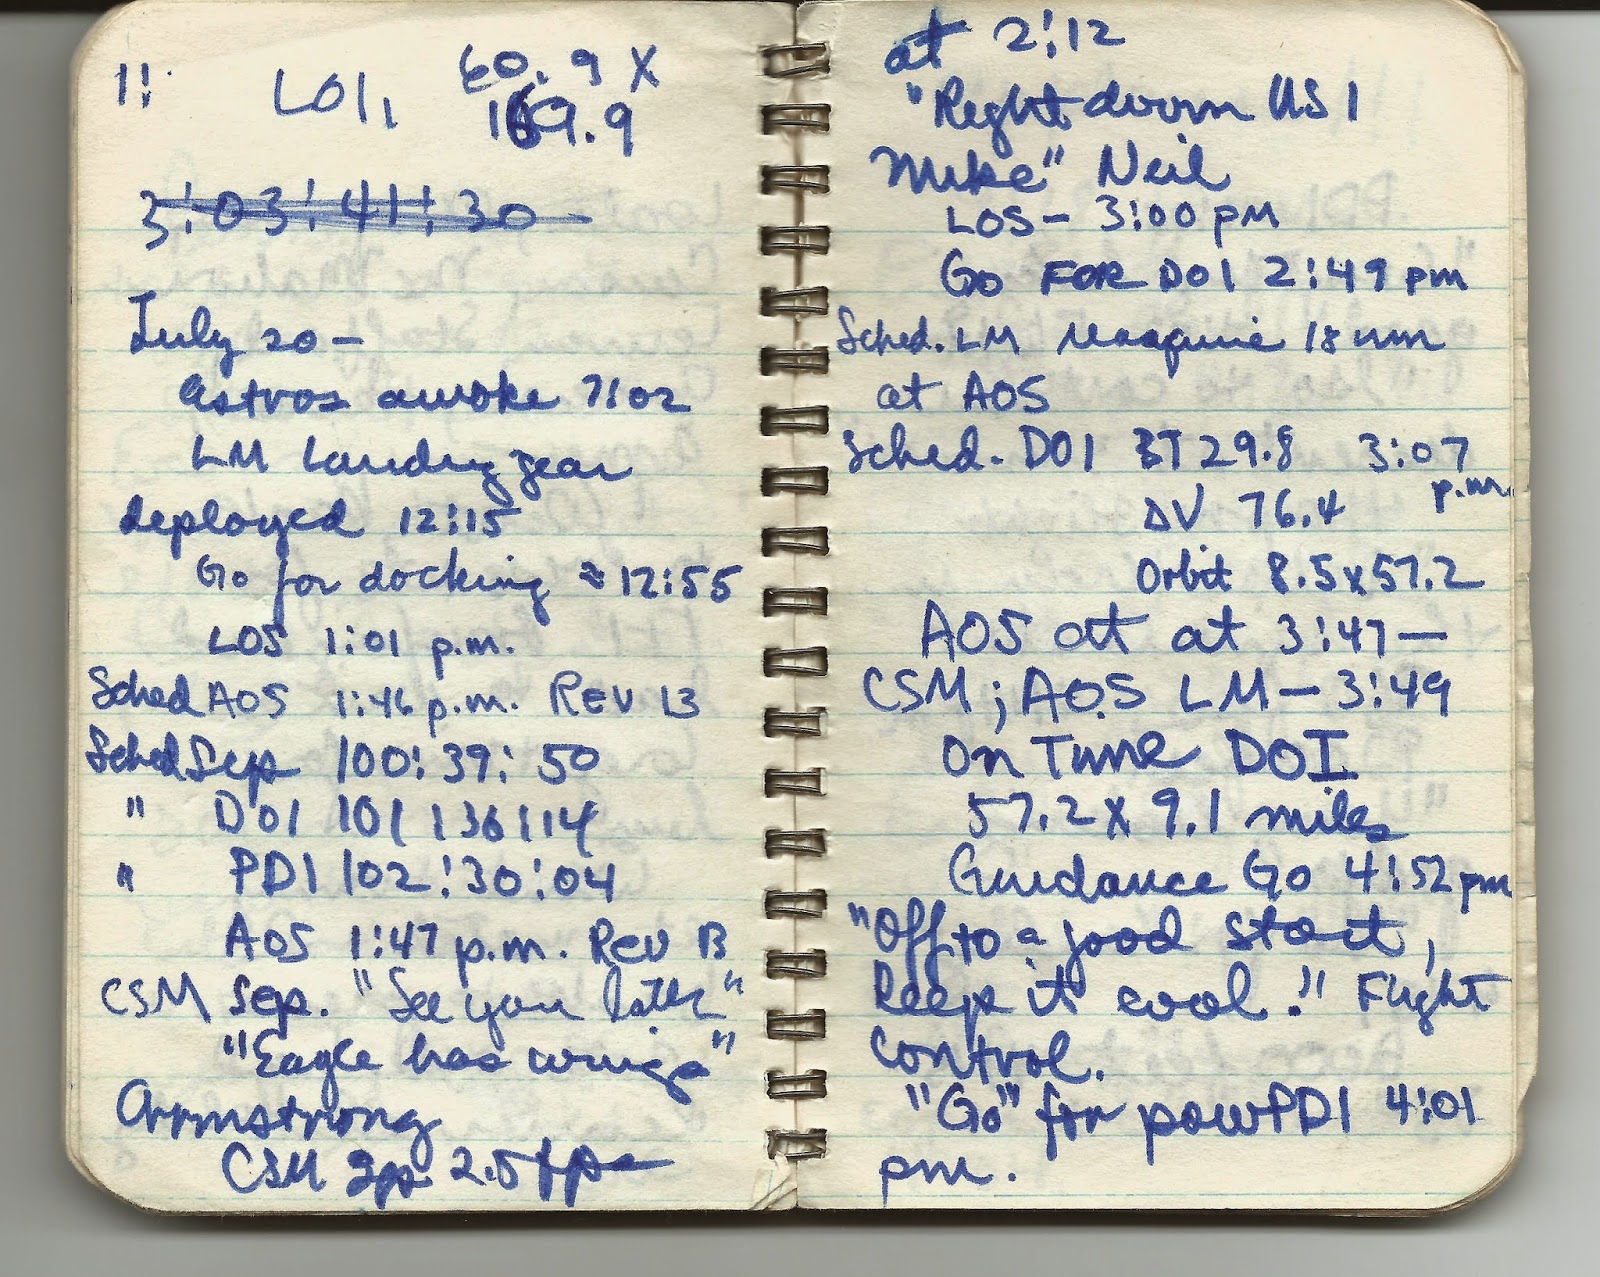 1:
LOI, 60.9 X
169.9
3:03:41:30
July 20 -
Astros awoke 7:02
LM Landing gear
deployed 12:15
Go for docking ≈ 12:55
LOS 1:01 p.m.
Sched AOS 1:46 p.m. REV 13
Sched Sep 100:39:50
" DOI 101:36:14
" PDI 102:30:04
AOS 1:47 p.m. Rev 13
CSM Sep. "See you later"
"Eagle has wings"
Armstrong
CSM Sep. 2.5 fps
at 2:12
"Right down US 1
Mike" Neil
LOS - 3:00 pm
Go FOR DOI 2:49 pm
Sched. LM 18 nm
at AOS
Sched. DOI BT 29.8 3:07
p.m.
ΔV 76.4
Orbit 8.5 x 57.2
AOS at at 3:47 —
CSM; AOS LM - 3:49
On Time DOI
57.2 X 9.1 miles
Guidance Go 4:52 pm
"Off to a good start,
keep it cool." Flight
Control.
"Go" for pow PDI 4:01
pm.